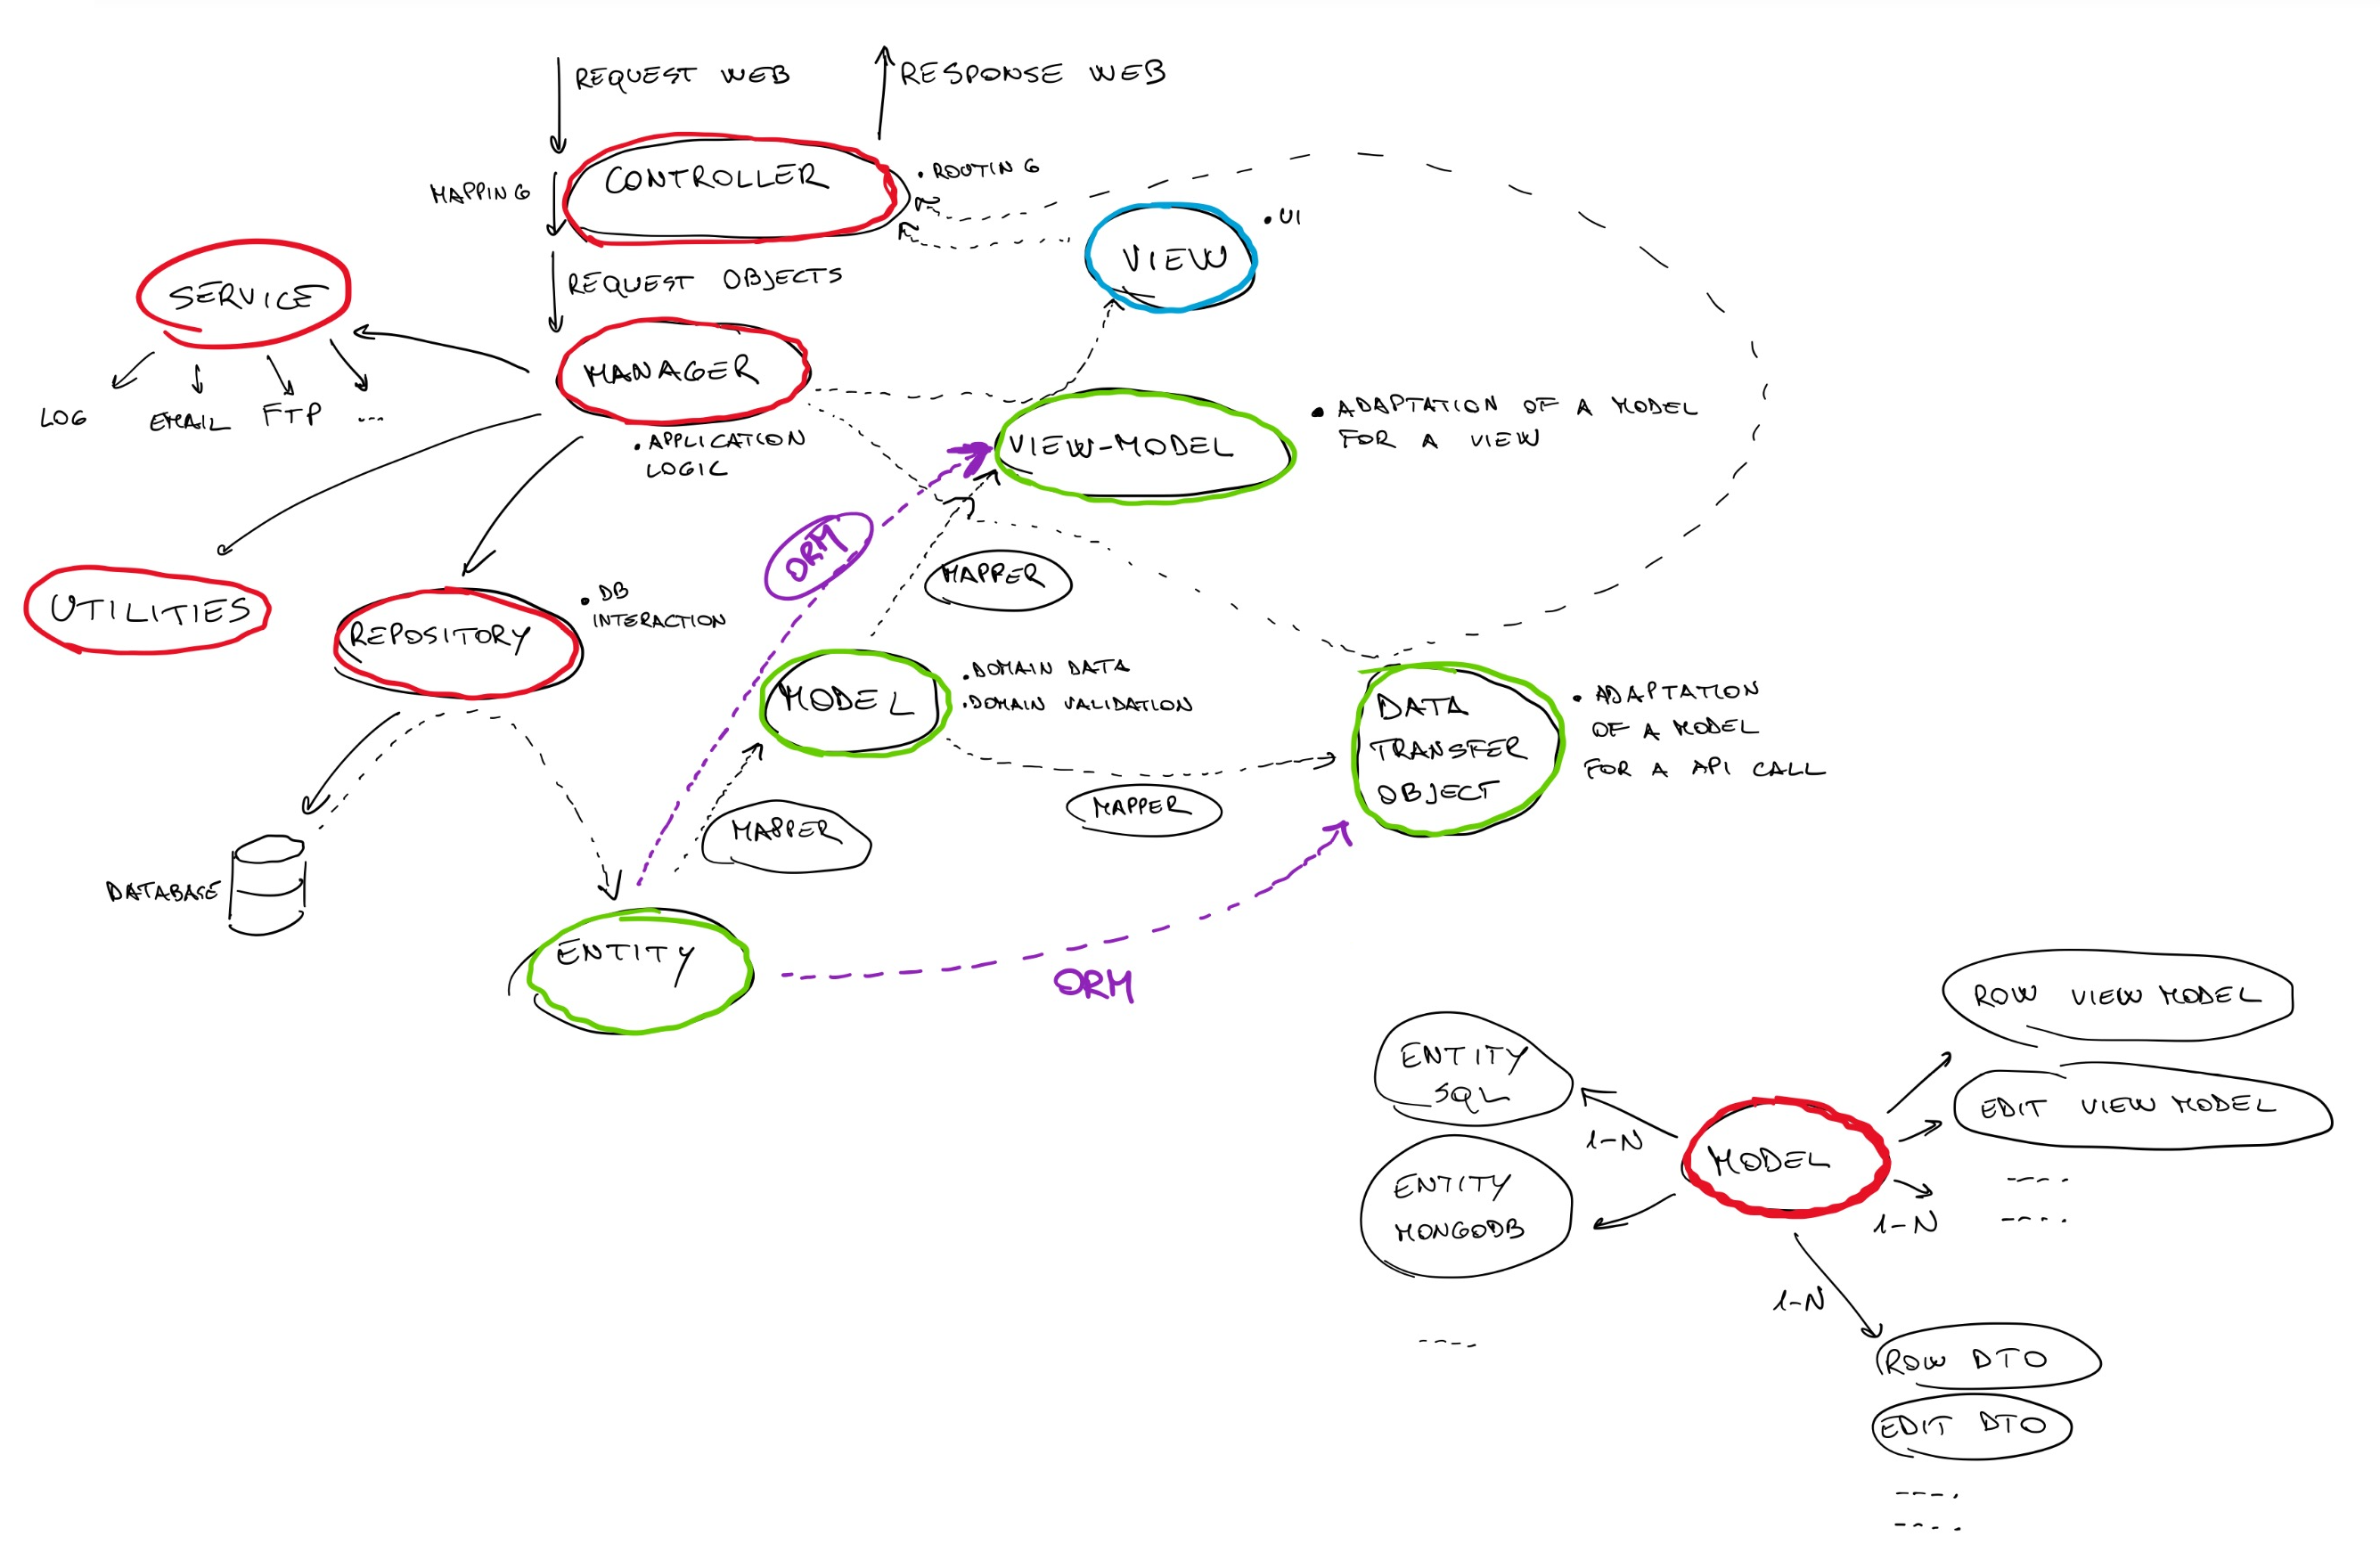 REQUEST WEB
RESPONSE WEB
CONTROLLER
• ROUTING
MAPPING
VIEW
• UI
REQUEST OBJECTS
SERVICE
MANAGER
LOG
EMAIL
FTP
...
• APPLICATION
LOGIC
VIEW-MODEL
• ADAPTATION OF A MODEL
FOR A VIEW
ORM
MAPPER
UTILITIES
REPOSITORY
• DB
INTERACTION
MODEL
• DOMAIN DATA
• DOMAIN VALIDATION
DATA
TRANSFER
OBJECT
• ADAPTATION
OF A MODEL
FOR A API CALL
MAPPER
MAPPER
DATABASE
ENTITY
ORM
ROW VIEW MODEL
ENTITY
SQL
EDIT VIEW MODEL
1-N
MODEL
ENTITY
MONGODB
----.
----.
1-N
1-N
----
ROW DTO
EDIT DTO
----.
----.